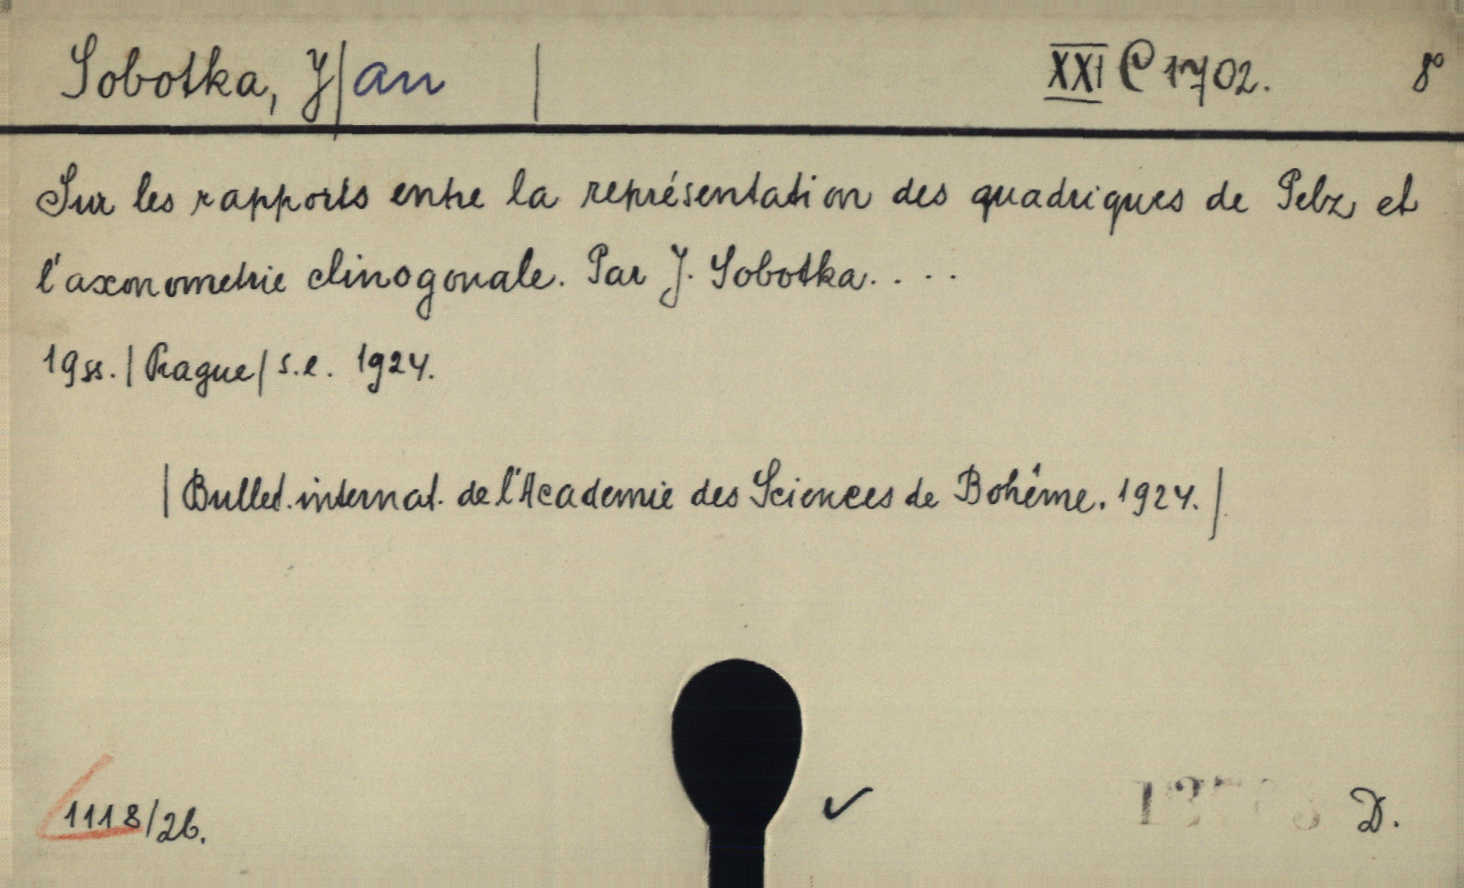 Sobotka, J|an | XXI C 1702. 8°
Sur les rapports entre la représentation des quadriques de Pelz et
l'axonometrie clinogonale. Par J. Sobotka. . . .
19 ss. | Prague | s.e. 1924.
| Bullet. internat. de l'Academie des Sciences de Bohême. 1924. |
1118/26.
D.